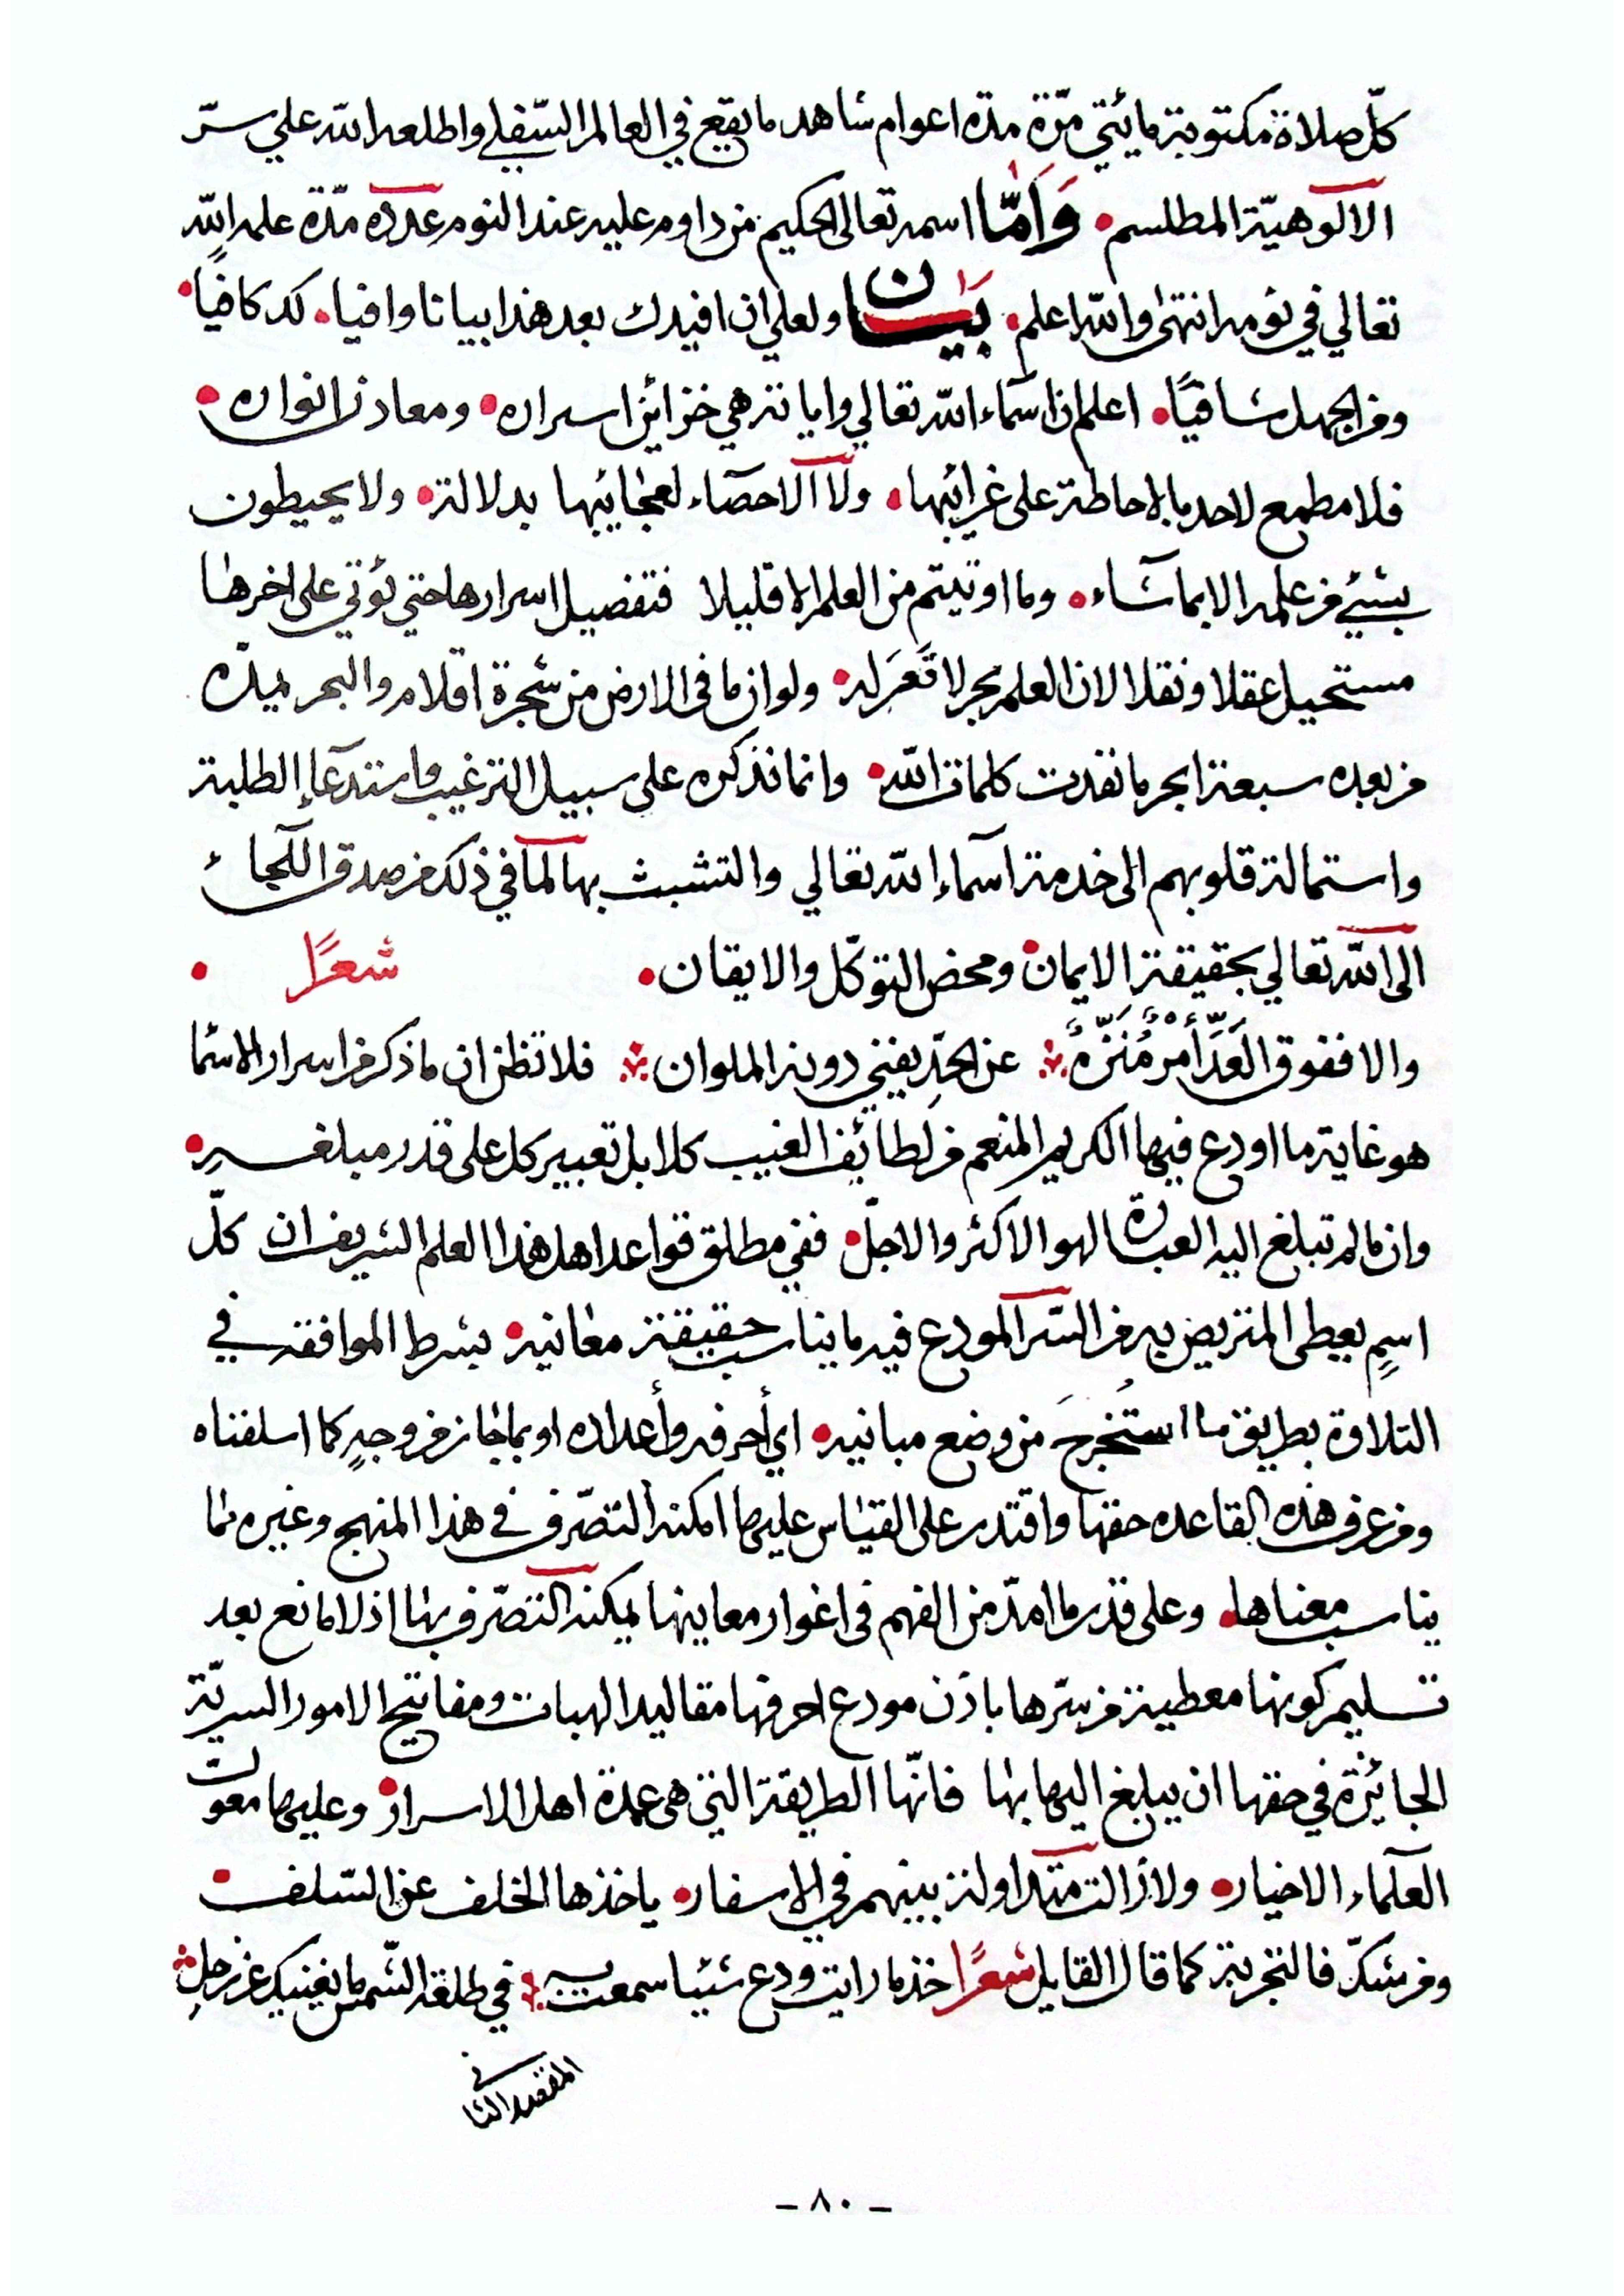 كلّ صلاة مكتوبة مايئتي مرّة مدة اعوام شاهد ما يقع في العالم السّفلي واطلعه الله علي سرّ
الالوهيّة المطلسم • وَاَمّا اسمه تعالى الحكيم من داوم عليه عند النوم عدده مدّة علمه الله
تعالي في نومه انتهى والله اعلم • بَيَان ولعلي ان افيدك بعد هذا بيانا وافيا • لك كافيًا •
ومن الجهل شافيًا • اعلم ان اسماء الله تعالي واياته هي خزائن اسراره • ومعادن انواره •
فلا مطمع لاحد بالاحاطة على غرائبها • ولا الاحصاء لعجائبها بدلالة • ولا يحيطون
بشئ من علمه الا بما شاء • وما اوتيتم من العلم الا قليلا فتفصيل اسرارها حتي يؤتي على اخرها
مستحيل عقلا ونقلا لان العلم بحر لا قعر له • ولو ان ما في الارض من شجرة اقلام والبحر يمدّه
من بعده سبعة ابحر ما نفدت كلمات الله • وانما نذكره على سبيل الترغيب واستدعاء الطلبة
واستمالة قلوبهم الى خدمة اسماء الله تعالي والتشبث بها لما في ذلك من صدق اللجاء
الى الله تعالي بحقيقة الايمان • ومحض التوكّل والايقان • شعرًا •
والا ففوق العَدّ أمر مُنَزّهٌ عن الحدِّ يفني دونه الملوان فلا تظن ان ما ذكر من اسرار الاسما
هو غاية ما اودع فيها الكريم المنعم من لطائف الغيب كلا بل تعبير كل على قدر مبلغه •
وان ما لم تبلغ اليه العبارة لهو الاكثر والاجلّ • ففي مطلق قواعد اهل هذا العلم الشريف ان كلّ
اسمٍ يعطى المتريض به من السّر المودع فيه ما يناسب حقيقة معانيه • بشرط الموافقه في
التلاوة بطريق ما استُخرجَ من وضع مبانيه • اي أحرفه وأعداده او بما جاز من وجهٍ كما اسلفناه
ومن عرف هذه القاعده حقها واقتدر على القياس عليها امكنه التصّرف في هذا المنهج وغيره مما
يناسب معناها • وعلى قدر ما امدّ من الفهم في اغوار معاينها يمكنه التصّرف بها اذ لا مانع بعد
تسليم كونها معطية من سّرها باذن مودع احرفها مقاليد الهبات ومفاتيح الامور السريّة
الجائزة في حقها ان يبلغ اليها بها فانّها الطريقة التي هي عمدة اهل الاسرار • وعليها معولت
العلماء الاخيار • ولازالت متداولة بينهم في الاسفار • ياخذها الخلف عن السّلف •
ومن شكّ فالتجربة كما قال القايل شعرًا خذ ما رايت ودع شيئا سمعت به في طلعة الشّمس ما يغنيك عن زحلِ
المقصد الثاني
- ٨٠ -